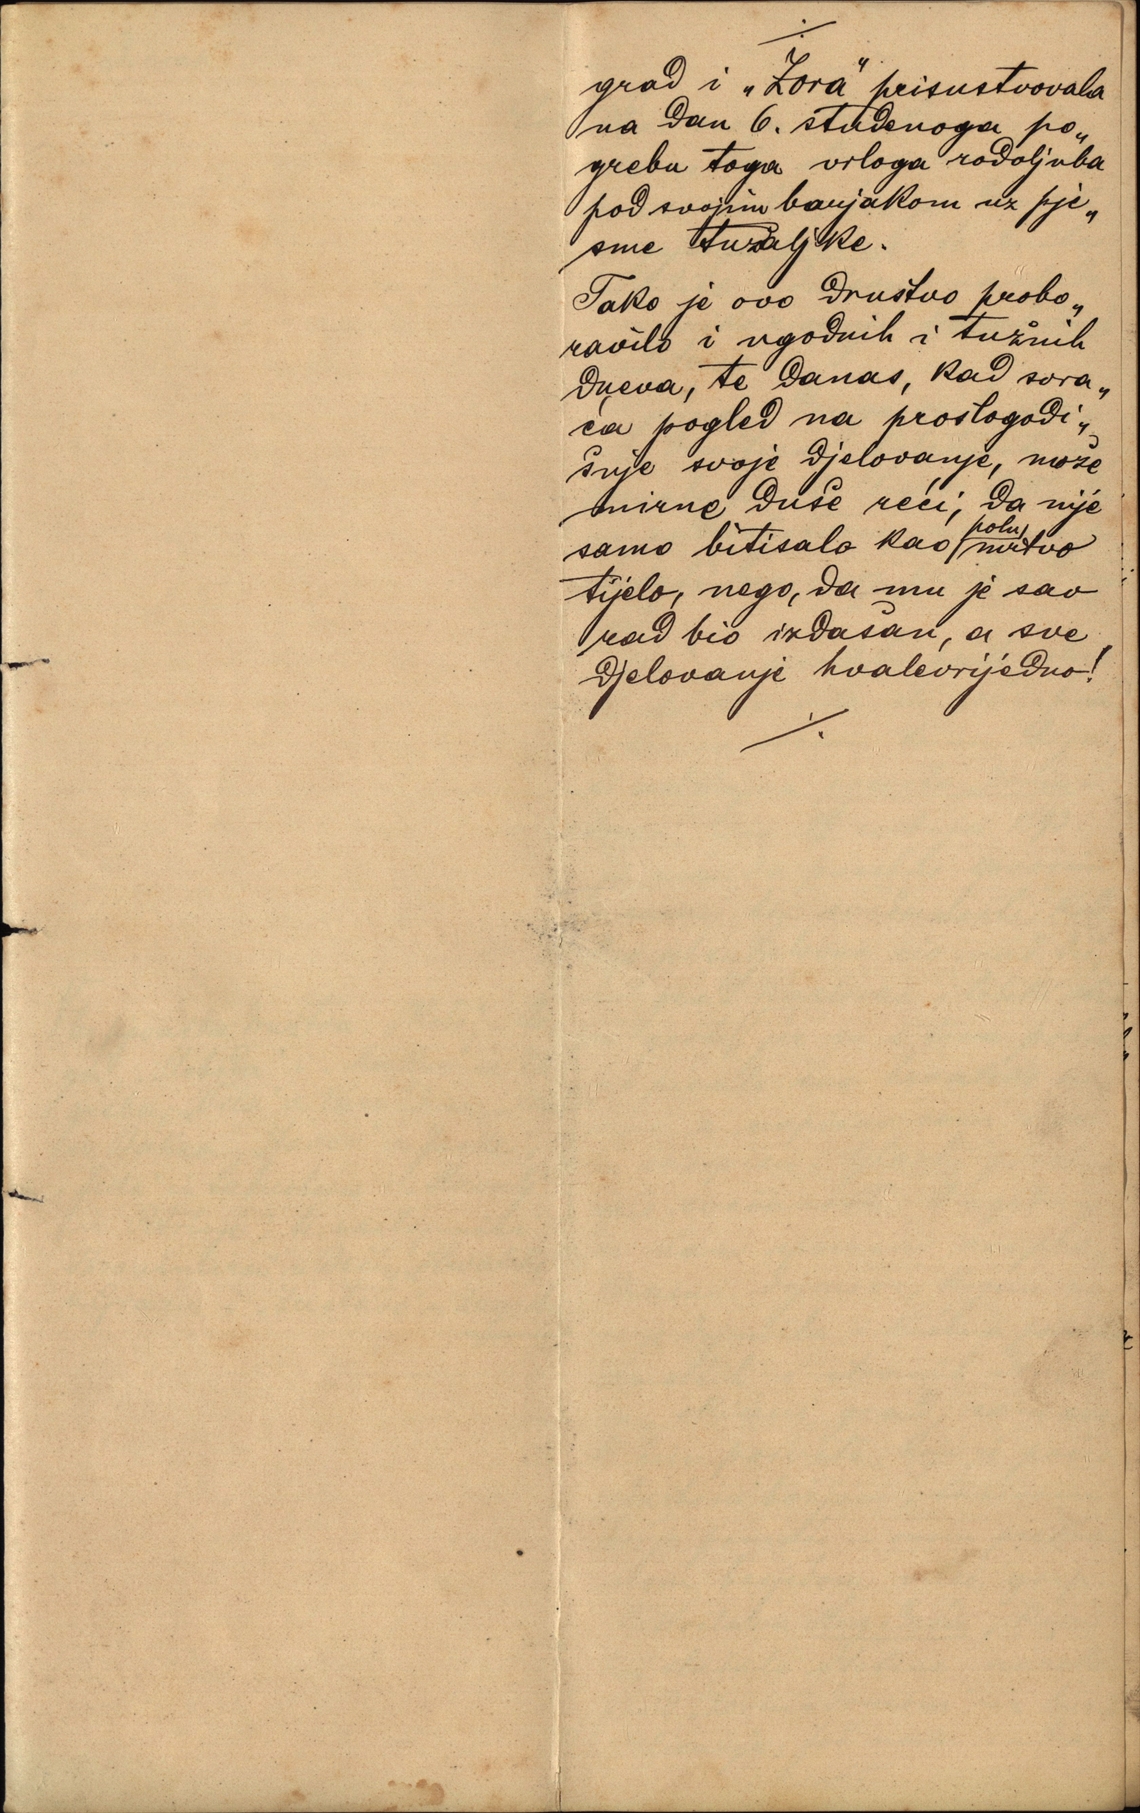 grad i „Zora“ prisustvovala
na dan 6. studenoga po„
grebu toga vrloga rodoljuba
pod svojim barjakom uz pje„
sme tužaljke.
Tako je ovo društvo probo„
ravilo i ugodnih i tužnih
dneva, te danas, kad svra„
ća pogled na proslogodi„
šnje svoje djelovanje, može
mirne duše reći, da nije
samo bitisalo kao polu,
mrtvo
tijelo, nego, da mu je sav
rad bio izdašan, a sve
djelovanje hvalevrijedno!